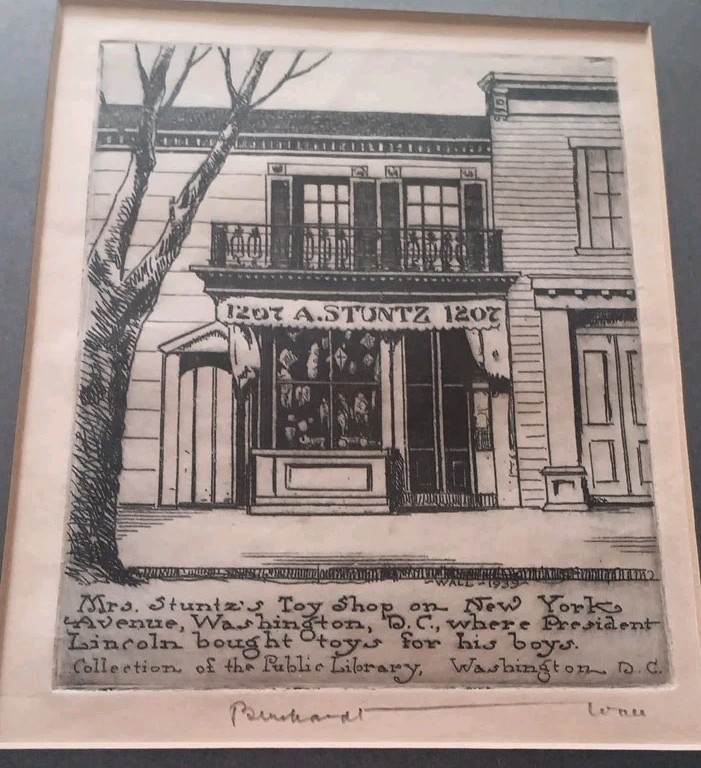 1207 A. STUNTZ 1207
WALL - 1939
Mrs. Stuntz's Toy Shop on New York
Avenue, Washington, D.C., where President
Lincoln bought toys for his boys.
Collection of the Public Library, Washington D.C.
Bernhardt Wall